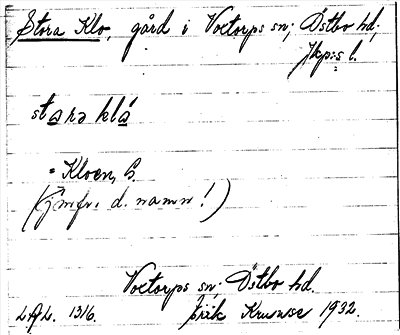 Stora Klo, gård i Voxtorps sn; Östbo hd;
Jkp:s l.
stara klå
Kloen, S.
(jmfr: d. namn!)
Voxtorps sn; Östbo hd.
L.A.L. 1316. 1932.